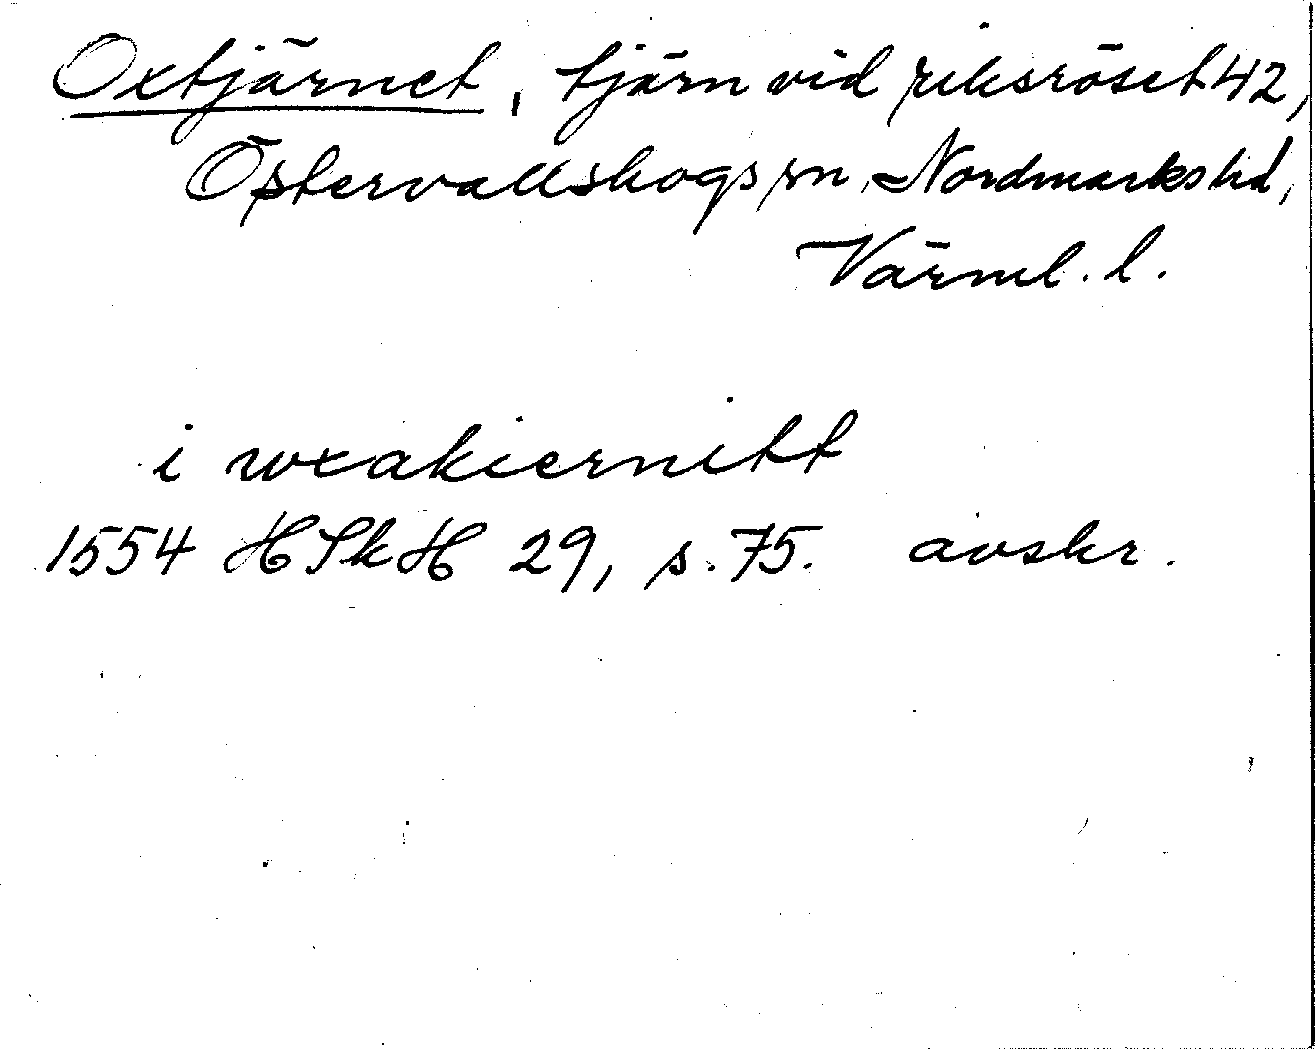 Oxtjärnet, tjärn vid riksröset 42,
Östervallskogs sn, Nordmarks hd,
Värml. l.
i wxakiernitt
1554 HSkH 29, s. 75. avskr.